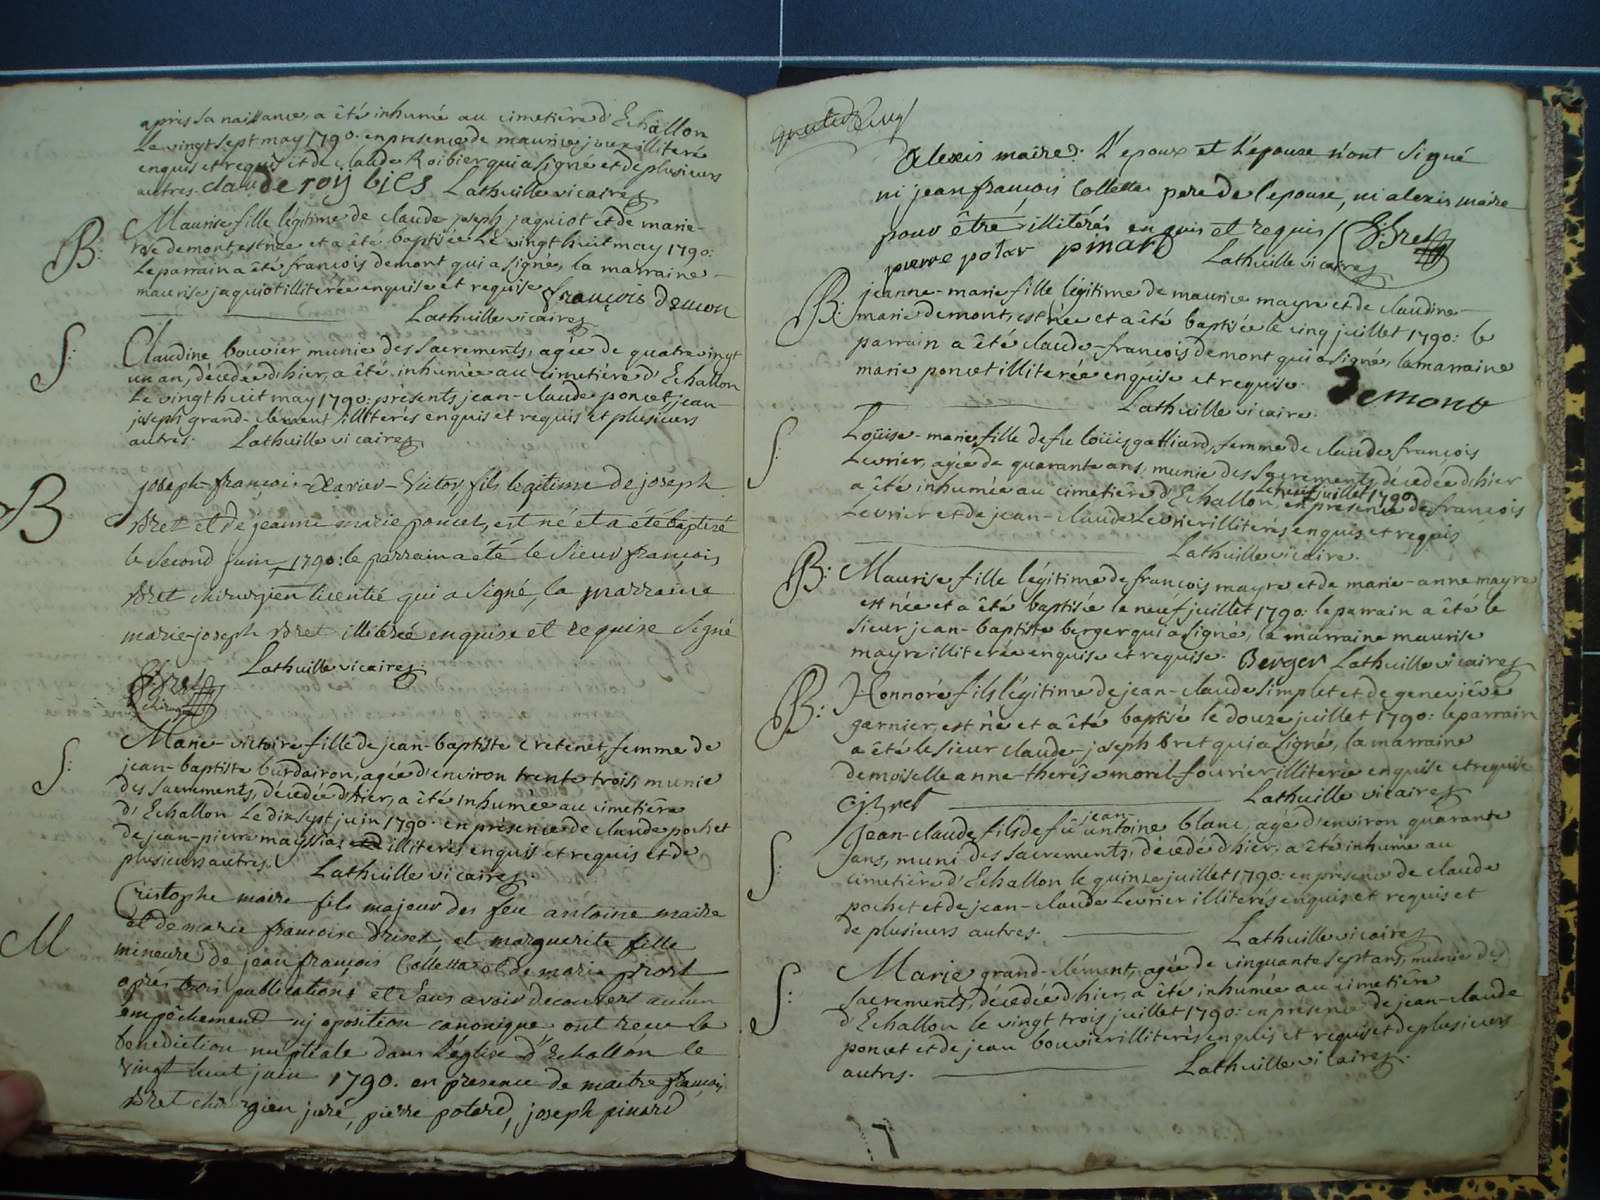 après sa naissance, a été inhumé au cimetière d'Echallon
Le vingt sept may 1790. en presence de maurice joux illiteré
enquis et requis et de claude Roibier qui a signé et de plusieurs
autres. claude roy bies Lathuille vicaire
B: Maurise fille légitime de claude joseph jaquiot et de marie-
rose demont, est née et a été baptisée Le vingt huit may 1790:
Le parrain a été francois demont qui a signé, la marraine
maurise jaquiot illiterée enquise et requise françois demon
Lathuille vicaire
S: Claudine bouvier munie des sacrements, agée de quatre vingt
un an, décédée d'hier, a été inhumée au cimetière d'Echallon
Le vingt huit may 1790: présents jean-claude poncet jean
joseph grand-clement illiterés enquis et requis et plusieurs
autres. Lathuille vicaire
B joseph-françois-Xavier-Victor, fils legitime de joseph
Bret et de jeanne marie poncet, est né et a été baptisé
le second juin 1790: le parrain a été le sieur françois
Bret chirurgien licentié qui a signé, la marraine
marie-joseph Bret illiterée enquise et requise signé
Lathuille vicaire
Bret
chirurgien
S: Marie-victoire fille de jean-baptiste cretenet, femme de
jean-baptiste burdairon, agée d'environ trente trois, munie
des sacrements, décédée d'hier, a été inhumée au cimetière
d'Echallon Le dix sept juin 1790. en présence de claude pochet
de jean-pierre maissiat illiterés enquis et requis et de
plusieurs autres. Lathuille vicaire
M Cristophe maire fils majeur des feu antoine maire
et de marie francoise Driset, et marguerite fille
mineure de jean françois Colletta et de marie prost
après trois publications et sans avoir decouvert aucun
empêchement nj oposition canonique ont recu la
benediction nuptiale dans L'église d'Echallon le
vingt huit juin 1790. en presence de maitre françois
Bret chirurgien juré, pierre potard, joseph pinard
Alexis maire: L'epoux et L'epouse n'ont signé
ni jean françois Colletta pere de lepouse, ni alexis maire
pour être illiterés enquis et requis / Bret
pierre potar pinard Lathuille vicaire
B: jeanne-marie fille légitime de maurice mayre et de claudine-
marie demont, est née et a été baptisée le cinq juillet 1790: le
parrain a été claude-françois demont qui a signé, la marraine
marie poncet illiterée enquise et requise. Demont
Lathuille vicaire.
S: Loüise-marie fille de fu loüis galliard, femme de claude françois
Levrier, agée de quarante ans, munie des sacrements, décédée d'hier
a été inhumée au cimetière d'Echallon, le neuf juillet 1790 en présence de françois
Levrier et de jean-claude Levrier illiterés enquis et requis
Lathuille vicaire.
B: Maurise fille légitime de françois mayre et de marie-anne mayre
est née et a été baptisée le neuf juillet 1790: le parrain a été le
sieur jean-baptiste berger qui a signé, la marraine maurise
mayre illiterée enquise et requise. Berger Lathuille vicaire
B: Honnoré fils légitime de jean-claude simplet et de geneviève
garnier, est né et a été baptisé le douze juillet 1790: le parrain
a été le sieur claude-joseph bret qui a signé, la marraine
demoiselle anne-therèse morel-fourier illiterée enquise et requise
cj bret Lathuille vicaire
S: Jean-claude fils de fû jean-antoine blanc, agé d'environ quarante
ans, muni des sacrements, décédé d'hier, a été inhumé au
cimetière d'Echallon le quinze juillet 1790: en présence de claude
pochet et de jean-claude Levrier illiterés enquis et requis et
de plusieurs autres. Lathuille vicaire
S: Marie grand-clément, agée de cinquante sept ans, munie des
sacrements, décédée d'hier, a été inhumée au cimetière
d'Echallon le vingt trois juillet 1790: en présence de jean-claude
poncet et de jean bouvier illiterés enquis et requis et de plusieurs
autres. Lathuille vicaire.
17